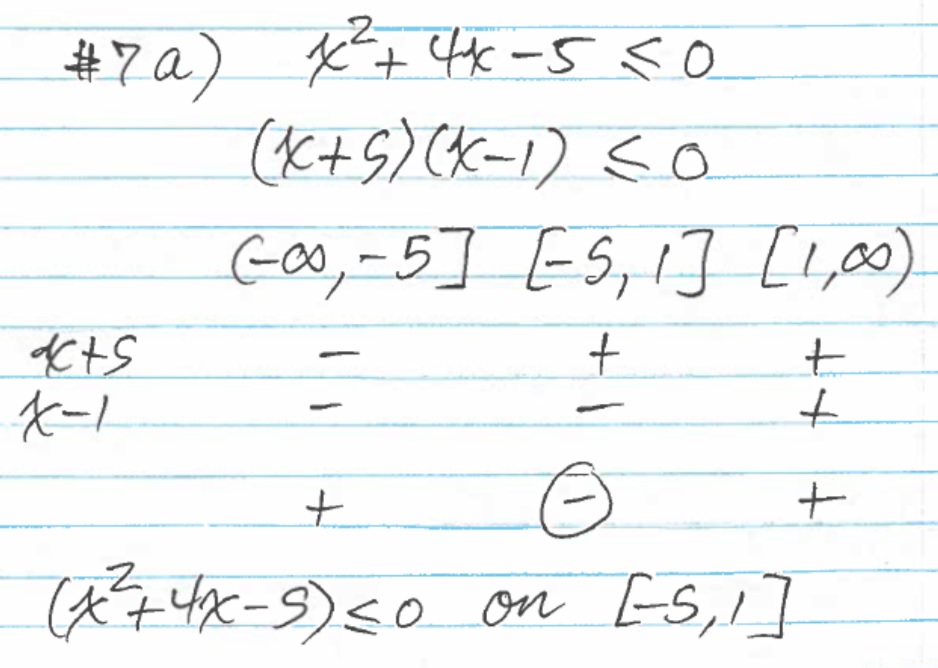 #7a) x²+4x-5 ≤ 0
(x+5)(x-1) ≤ 0
(-∞,-5] [-5,1] [1,∞)
x+5 - + +
x-1 - - +
+ - +
(x²+4x-5) ≤ 0 on [-5,1]